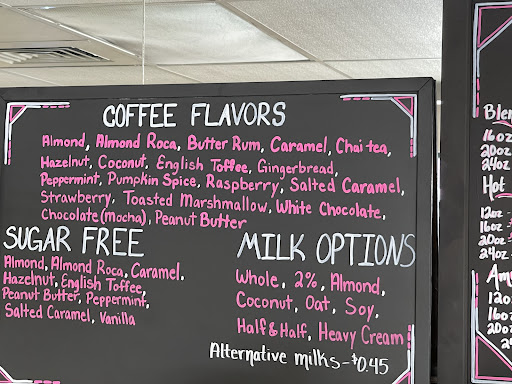 COFFEE FLAVORS
Almond, Almond Roca, Butter Rum, Caramel, Chai tea,
Hazelnut, Coconut, English Toffee, Gingerbread,
Peppermint, Pumpkin Spice, Raspberry, Salted Caramel,
Strawberry, Toasted Marshmallow, White Chocolate,
Chocolate (mocha), Peanut Butter
SUGAR FREE
Almond, Almond Roca, Caramel,
Hazelnut, English Toffee,
Peanut Butter, Peppermint,
Salted Caramel, Vanilla
MILK OPTIONS
Whole, 2%, Almond,
Coconut, Oat, Soy,
Half & Half, Heavy Cream
Alternative milks - $0.45
16oz
20oz
24oz
Hot
12oz
16oz
20oz
24oz